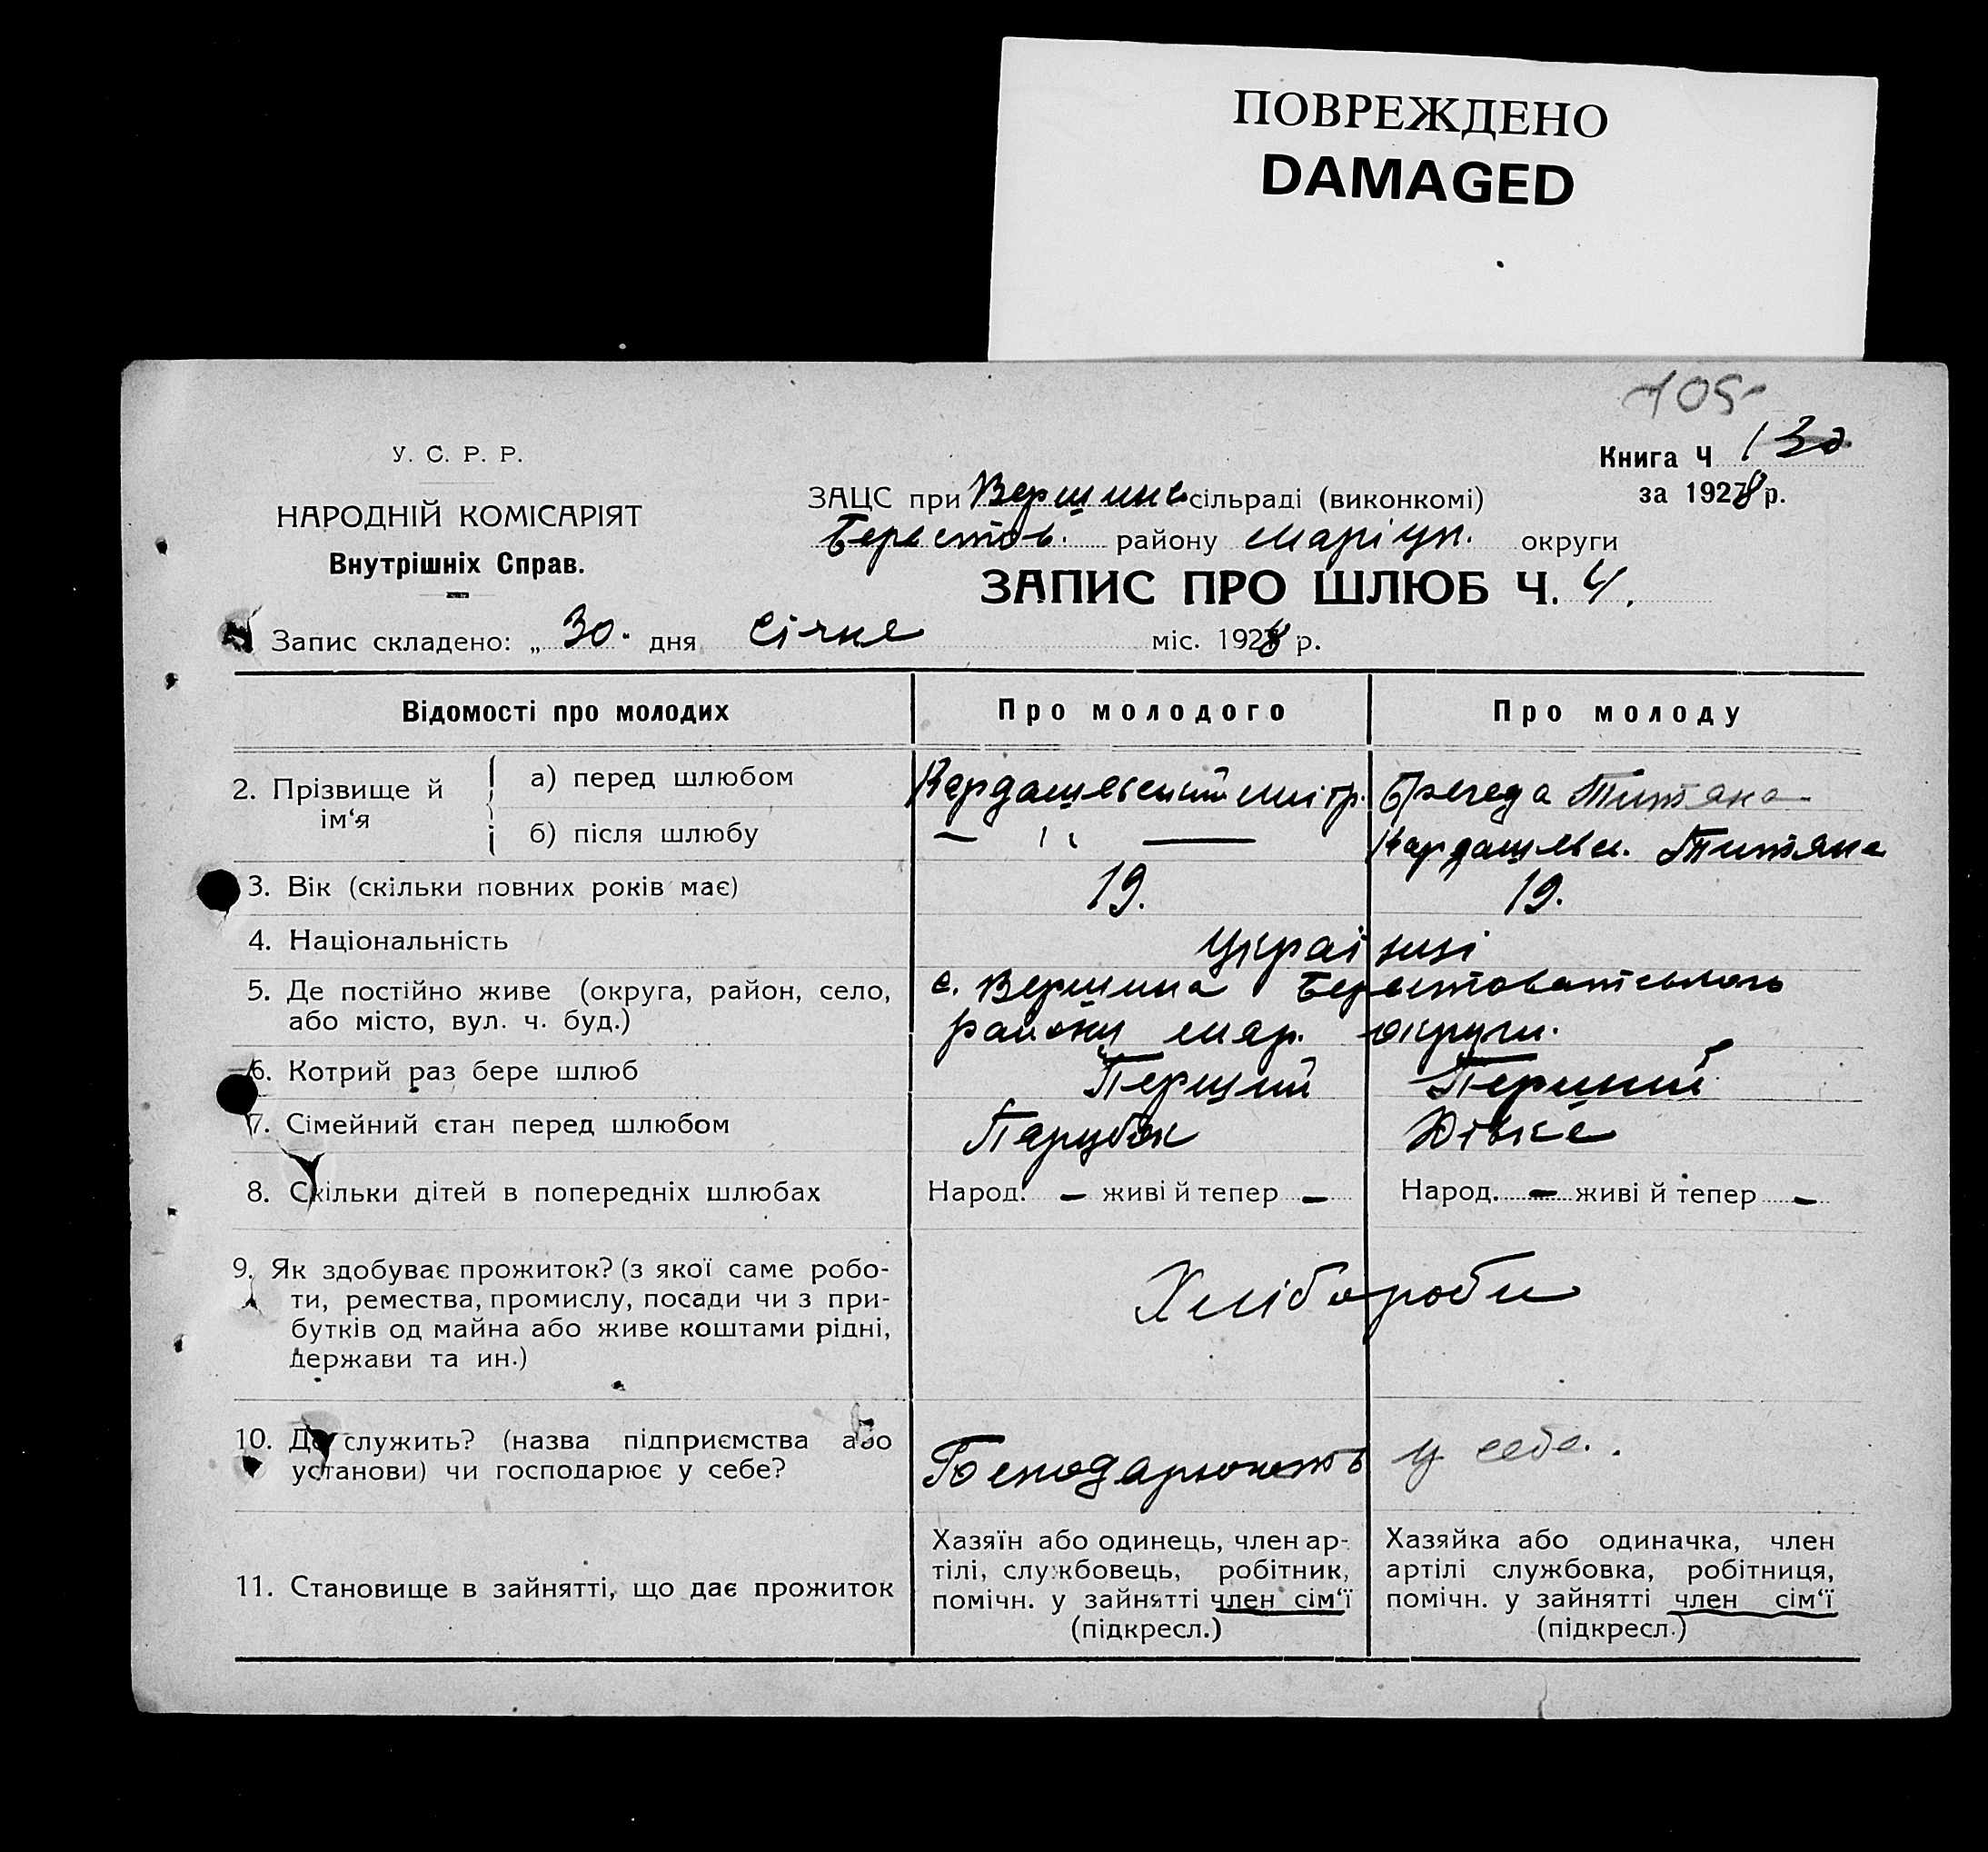 ПОВРЕЖДЕНО
DAMAGED
105
У. С. Р. Р.
Книга Ч 130
НАРОДНІЙ КОМІСАРІЯТ
ЗАЦС при Вершине сільраді (виконкомі)
за 1928 р.
Внутрішніх Справ.
Берестов. району Маріуп. округи
ЗАПИС ПРО ШЛЮБ Ч. 4.
Запис складено: „ 30. дня Січня міс. 1928 р.
Відомості про молодих
Про молодого
Про молоду
2. Прізвище й ім‘я
а) перед шлюбом
Кардашевський Митр.
Титяна
б) після шлюбу
— 〃 —
Кардашевс. Титяна
3. Вік (скільки повних років має)
19.
19.
4. Національність
Українці
5. Де постійно живе (округа, район, село,
або місто, вул. ч. буд.)
с. Вершина Берестоватського
району Мар. округи.
6. Котрий раз бере шлюб
Перший
Перший
7. Сімейний стан перед шлюбом
Парубок
Дівка
8. Скільки дітей в попередніх шлюбах
Народ. — живі й тепер —
Народ. — живі й тепер —
9. Як здобуває прожиток? (з якої саме робо-
ти, ремества, промислу, посади чи з при-
бутків од майна або живе коштами рідні,
держави та ин.)
Хлібороби
10. Де служить? (назва підприємства або
установи) чи господарює у себе?
Господарюють у себе.
11. Становище в зайнятті, що дає прожиток
Хазяїн або одинець, член ар-
тілі, службовець, робітник,
помічн. у зайнятті член сім‘ї
(підкресл.)
Хазяйка або одиначка, член
артілі службовка, робітниця,
помічн. у зайнятті член сім‘ї
(підкресл.)